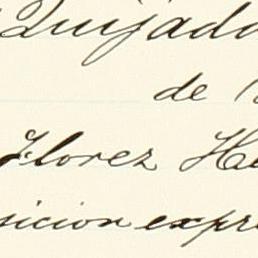 Quijada
de
Florez He
sicion expre